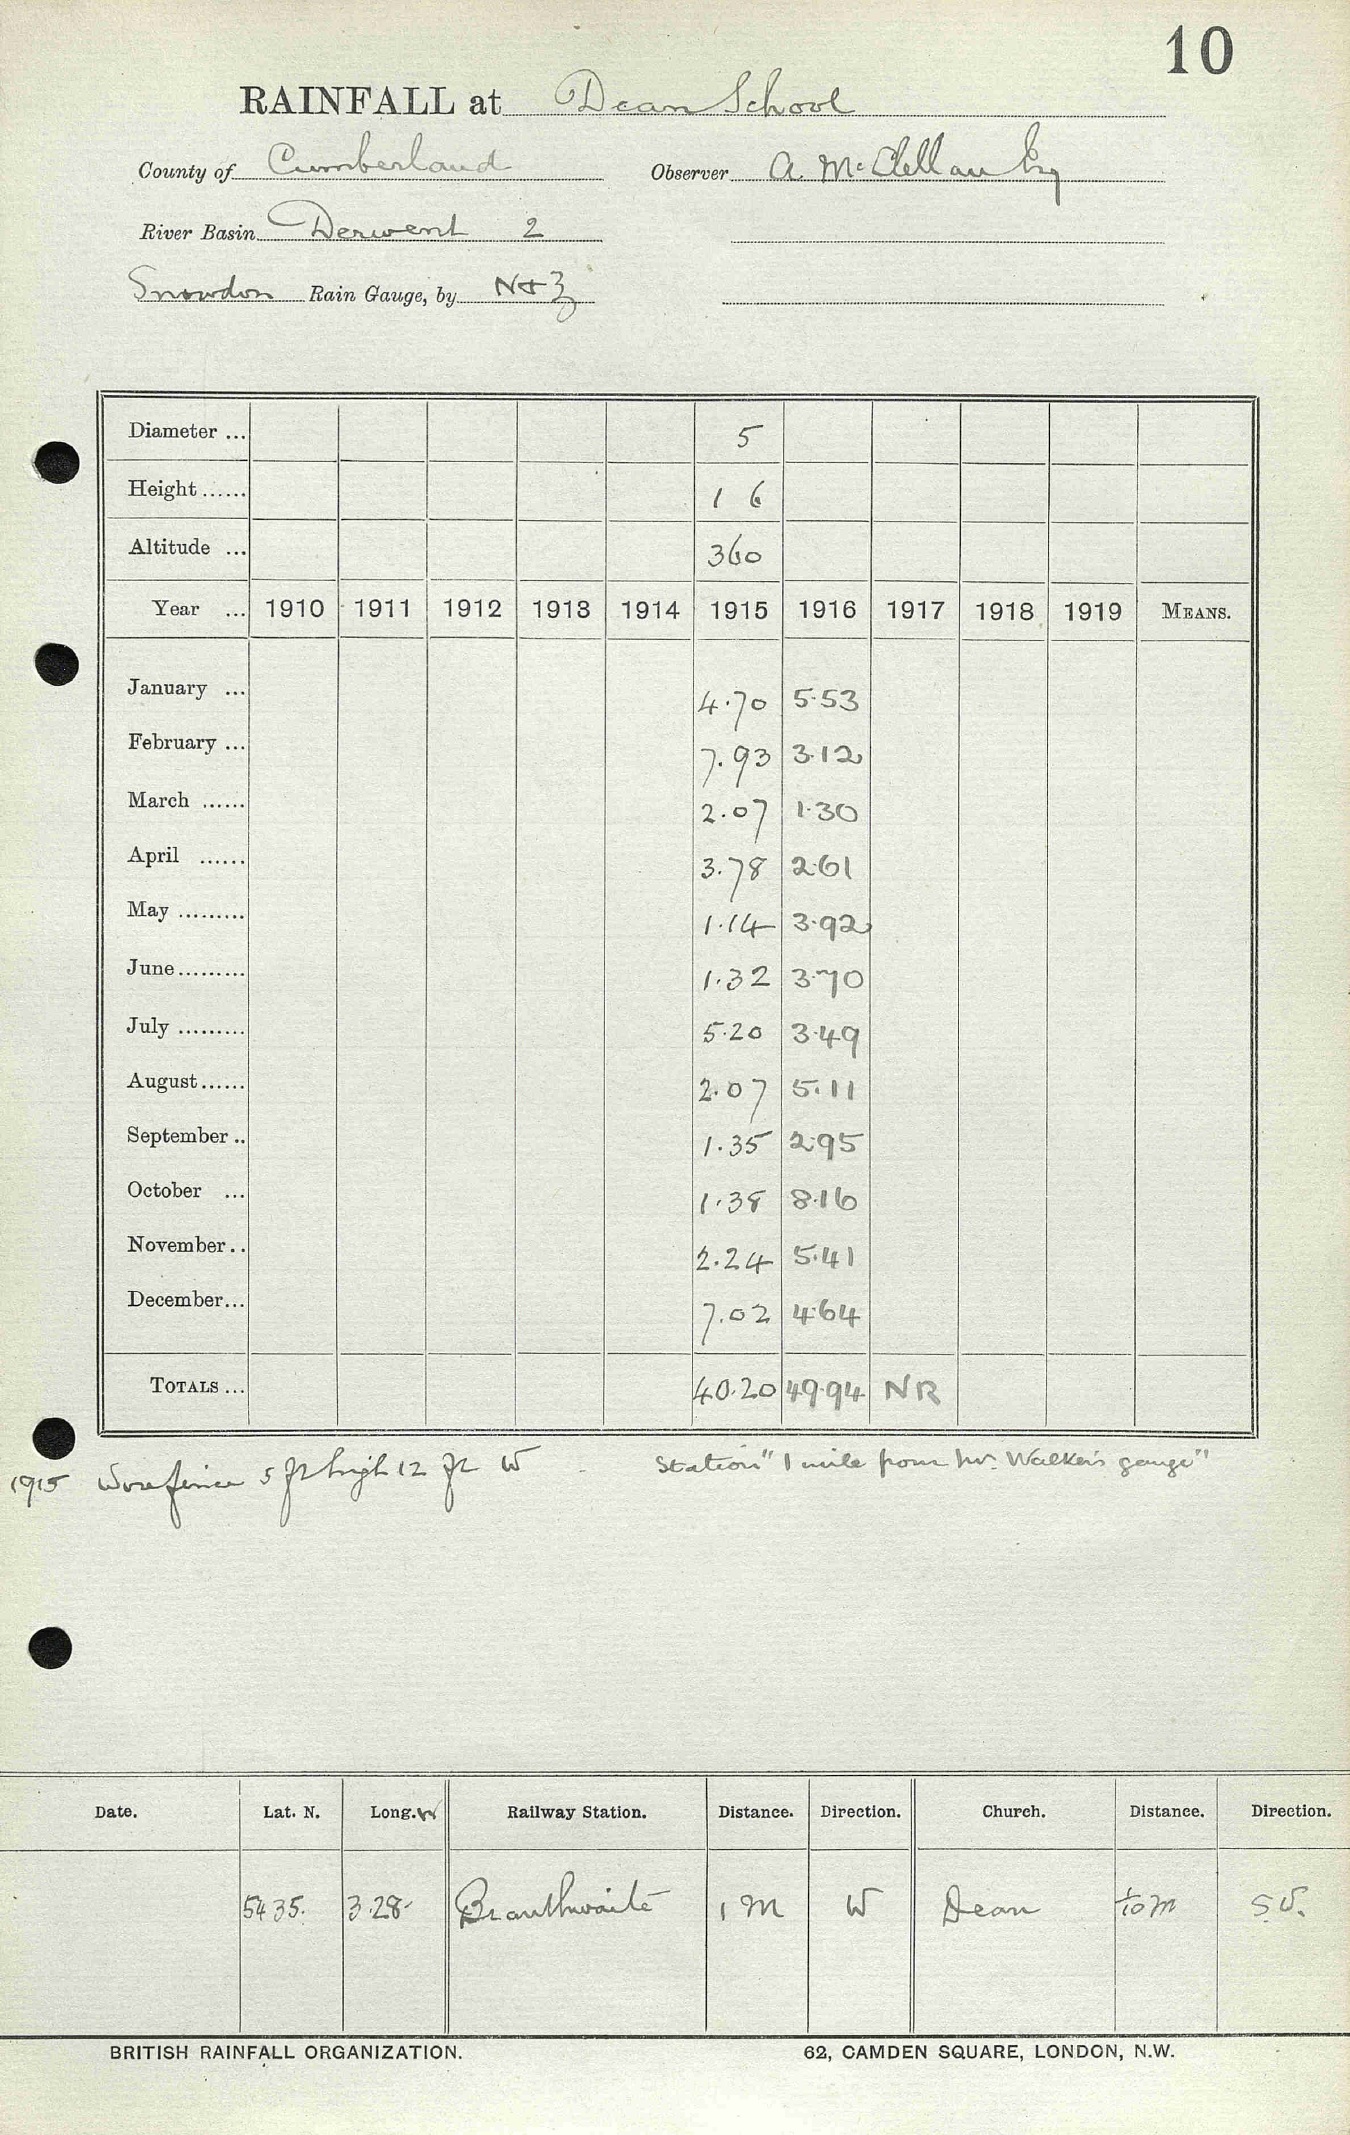 10
RAINFALL at Dean School
County of Cumberland Observer A. McClellan Esq
River Basin Derwent 2
Snowdon Rain Gauge, by N+Z
Diameter ... 5
Height...... 1 6
Altitude ... 360
Year ... 1910 1911 1912 1913 1914 1915 1916 1917 1918 1919 MEANS.
January ... 4.70 5.53
February ... 7.93 3.12
March ...... 2.07 1.30
April ...... 3.78 2.61
May ......... 1.14 3.92
June......... 1.32 3.70
July ......... 5.20 3.49
August...... 2.07 5.11
September .. 1.35 2.95
October ... 1.38 8.16
November.. 2.24 5.41
December... 7.02 4.64
TOTALS ... 40.20 49.94 NR
1915 fence 5 ft high 12 ft W Station "1 mile from Mr. Walker's gauge"
Date. Lat. N. Long. W Railway Station. Distance. Direction. Church. Distance. Direction.
54 35. 3.28 Branthwaite 1 M W Dean 1/10 m S.W.
BRITISH RAINFALL ORGANIZATION. 62, CAMDEN SQUARE, LONDON, N.W.